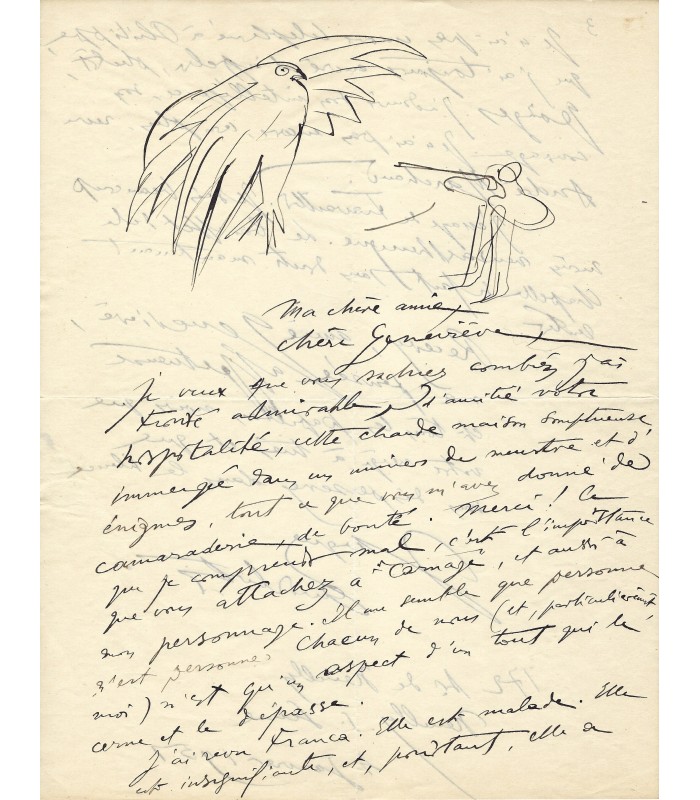 Ma chère amie,
chère Geneviève,
je veux que vous sachiez combien j'ai
trouvé admirable, l'amitié votre
hospitalité, cette chaude maison somptueuse
immergée dans un univers de meurtre et d'
énigmes, tout ce que vous m'avez donné de
camaraderie, de bonté. Merci! Ce
que je comprends mal, c'est l'importance
que vous attachez à "Carnage", et aussi à
mon personnage. Il me semble que personne
n'est personne. Chacun de nous (et, particulièrement
moi) n'est qu'un aspect d'un tout qui le
cerne et le dépasse.
J'ai revu Franca. Elle est malade. Elle
est insignifiante, et, pourtant, elle a